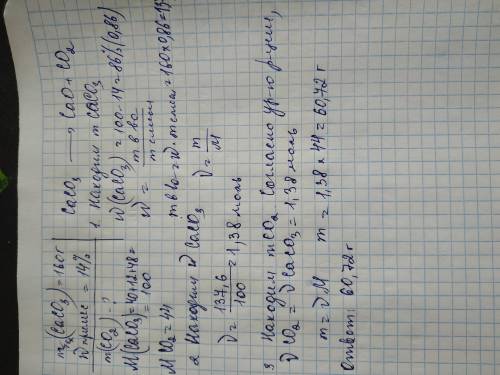 m(CaCO₃) = 160 г
W примес = 14%
m(CO₂) - ?
M(CaCO₃) = 40+12+48 =
= 100
M CO₂ = 44
CaCO₃ ⟶ CaO + CO₂
1 Находим m CaCO₃
W(CaCO₃) = 100-14 = 86% (0,86)
W = m в ва / m смеси
m в ва = W · m смеси = 160 × 0,86 = 13
2 Находим ν CaCO₃ ν = m / M
ν = 137,6 / 100 = 1,38 моль
3 Находим m CO₂ Согласно ур-ю р-ции,
ν CO₂ = ν CaCO₃ = 1,38 моль
m = νM m = 1,38 × 44 = 60,72 г
Ответ: 60,72 г